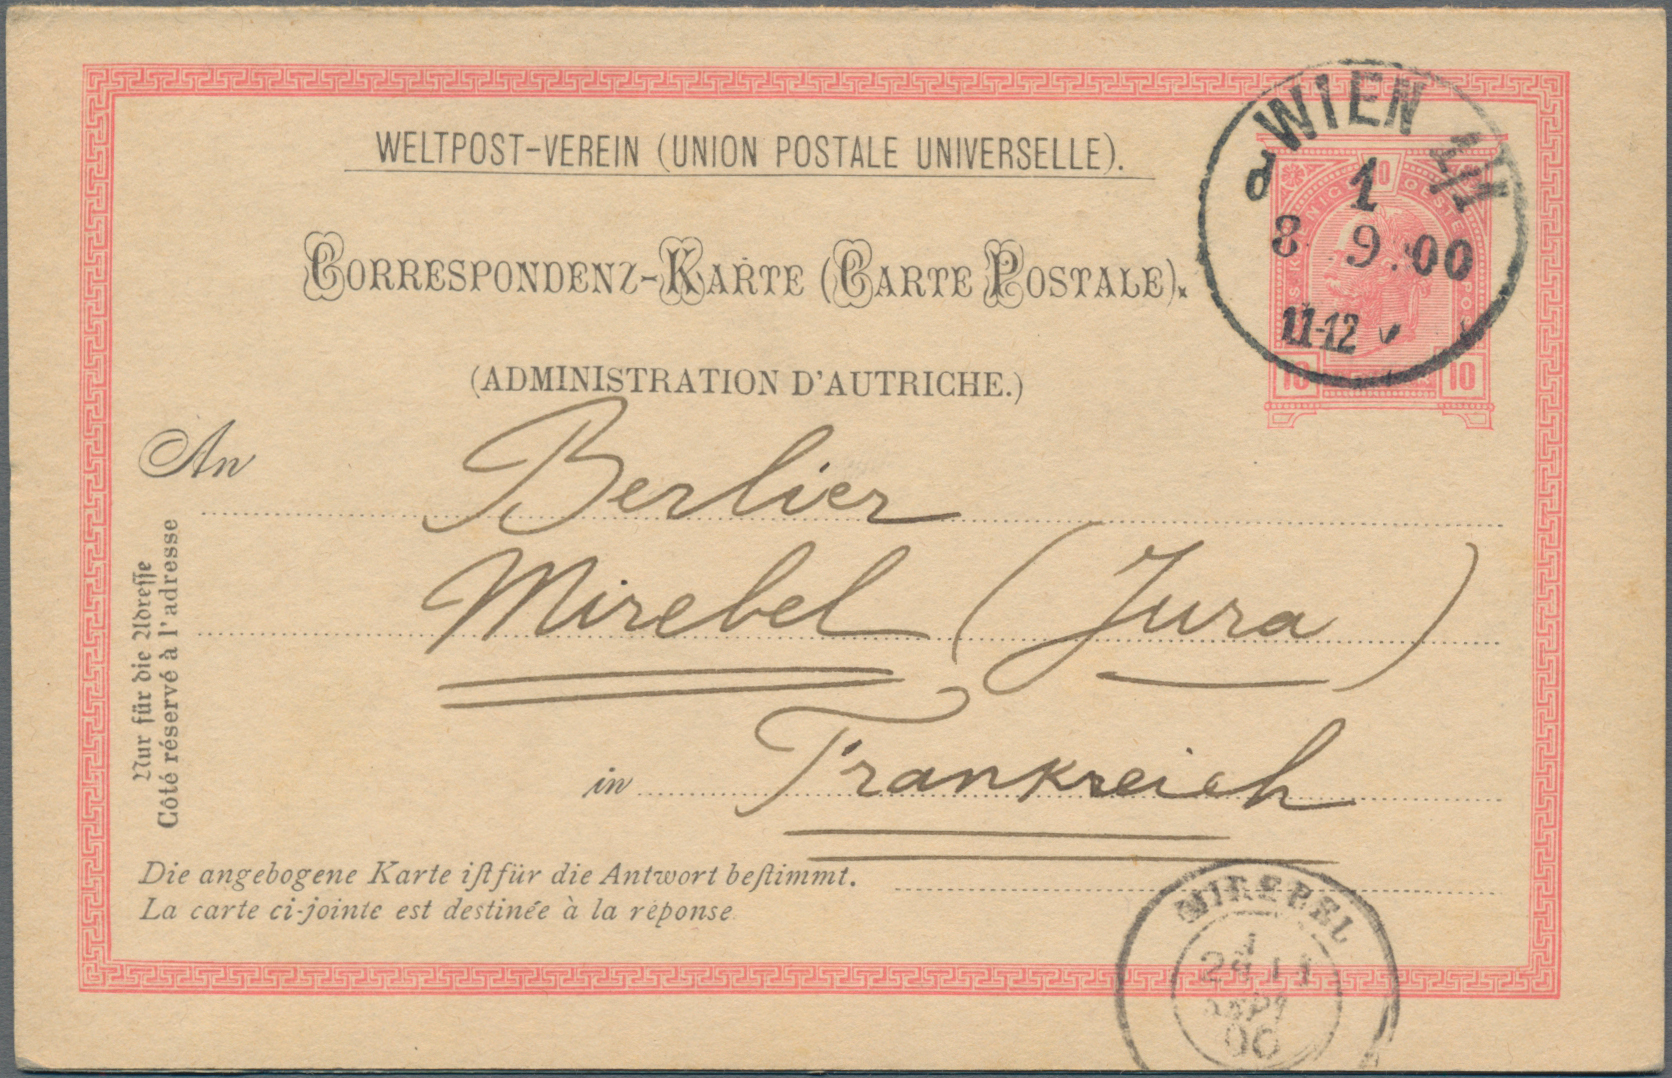 WELTPOST-VEREIN (UNION POSTALE UNIVERSELLE).
CORRESPONDENZ-KARTE (CARTE POSTALE).
(ADMINISTRATION D'AUTRICHE.)
WIEN 1/1
d 1
8. 9. 00
11-12 V
10
10 10
An
Berlier
Mirebel (Jura)
in Frankreich
Nur für die Adresse
Côté réservé à l'adresse
Die angebogene Karte iſt für die Antwort beſtimmt.
La carte ci-jointe est destinée à la réponse
MIREBEL
11
SEPT
00